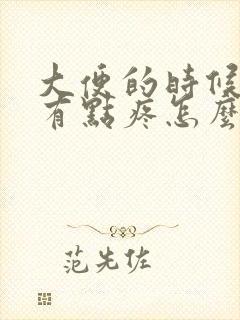 大便的時候
有點疼怎麼
范先佐